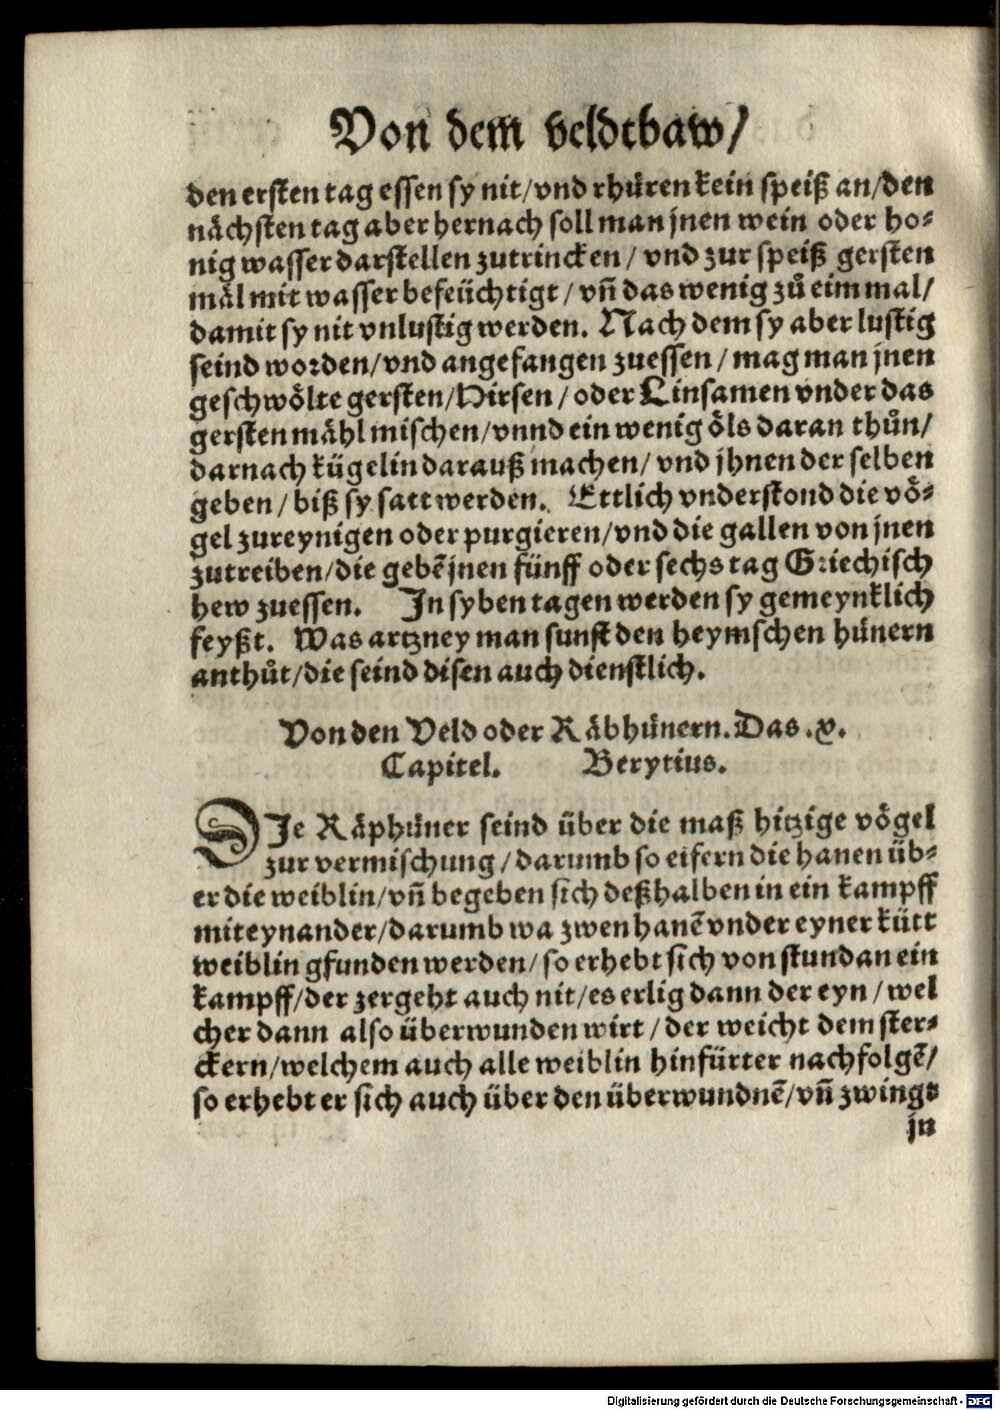 Von dem veldtbaw/
den ersten tag essen sy nit/vnd rhüren kein speiß an/den
nächsten tag aber hernach soll man jnen wein oder ho⸗
nig wasser darstellen zutrincken/ vnd zur speiß gersten
mäl mit wasser befeüchtigt/ vñ das wenig zů eim mal/
damit sy nit vnlustig werden. Nach dem sy aber lustig
seind worden/vnd angefangen zuessen/ mag man jnen
geschwölte gersten/Hirsen/ oder Linsamen vnder das
gersten mähl mischen/vnnd ein wenig öls daran thůn/
darnach kügelin darauß machen/ vnd jhnen der selben
geben/ biß sy satt werden. Ettlich vnderstond die vö⸗
gel zureynigen oder purgieren/vnd die gallen von jnen
zutreiben/die gebẽ jnen fünff oder sechs tag Griechisch
hew zuessen. In syben tagen werden sy gemeynklich
feyßt. Was artzney man sunst den heymschen hünern
anthůt/die seind disen auch dienstlich.
Von den Veld oder Räbhünern. Das .x.
Capitel. Berytius.
DIe Räphüner seind über die maß hitzige vögel
zur vermischung/darumb so eifern die hanen üb⸗
er die weiblin/vñ begeben sich deßhalben in ein kampff
miteynander/darumb wa zwen hanẽ vnder eyner kütt
weiblin gfunden werden/so erhebt sich von stundan ein
kampff/der zergeht auch nit/es erlig dann der eyn/wel
cher dann also überwunden wirt/der weicht dem ster⸗
ckern/welchem auch alle weiblin hinfürter nachfolgẽ/
so erhebt er sich auch über den überwundnẽ/vñ zwingt
jn
Digitalisierung gefördert durch die Deutsche Forschungsgemeinschaft - DFG